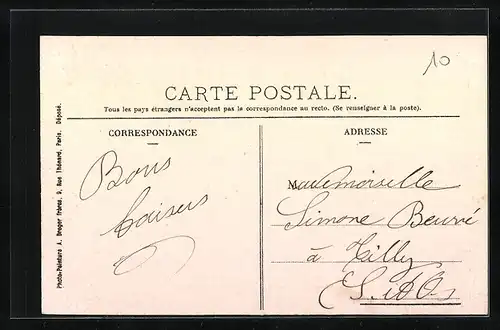 10
CARTE POSTALE.
Tous les pays étrangers n'acceptent pas la correspondance au recto. (Se renseigner à la poste).
CORRESPONDANCE
Bons
baisers
ADRESSE
Mademoiselle
Simone Beurré
à Tilly
S. & O.
Photo-Peinture A. Breger frères, 9, Rue Thénard, Paris. Déposé.